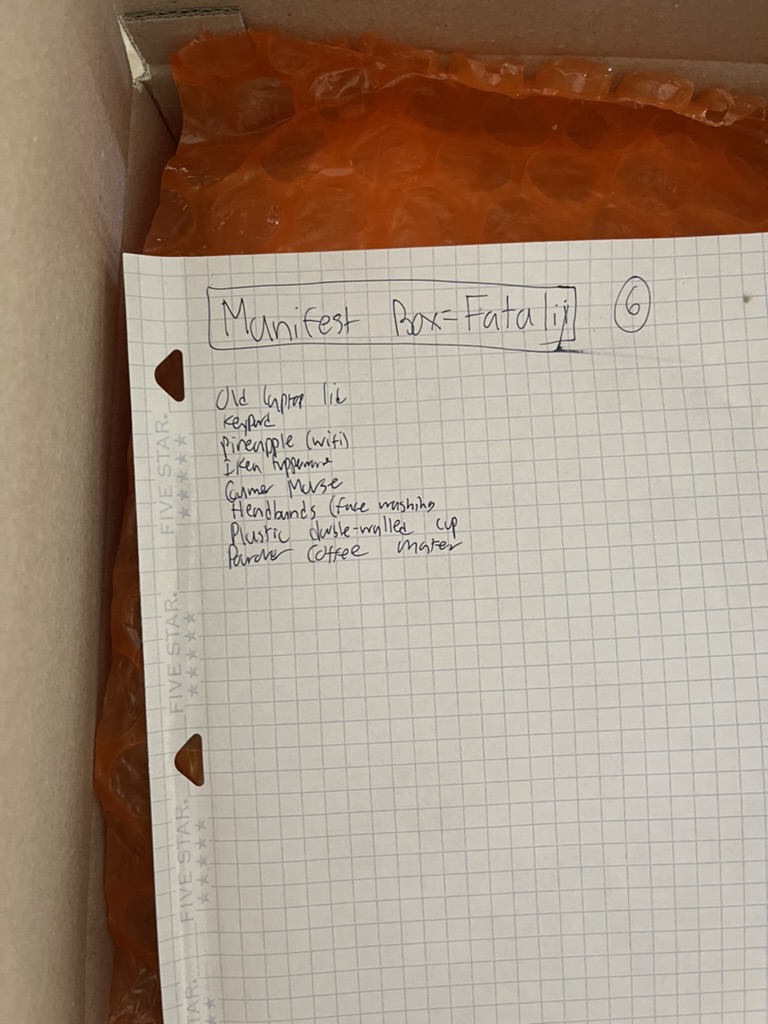 Manifest Box = Fatalij 6
Old laptop lid
Keypad
pineapple (wifi)
Ikea tupperware
Gamer Mouse
Headbands (face washing
Plastic double-walled cup
Coffee maker
FIVE STAR.
FIVE STAR.
FIVE STAR.
TAR.